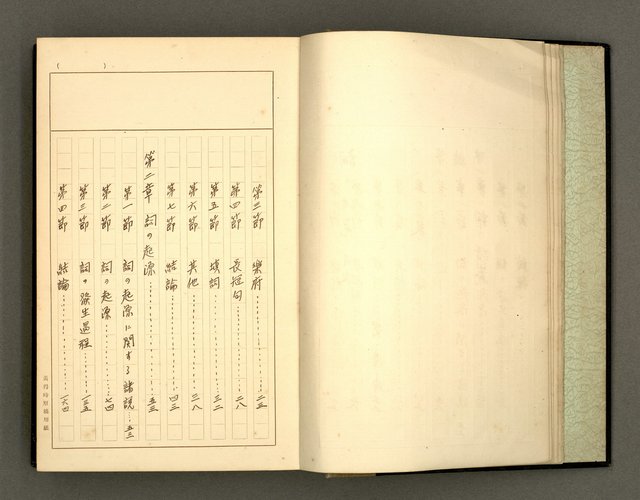 第三節 樂府……二五
第四節 長短句……二八
第五節 填詞……三二
第六節 其他……三八
第七節 結論……四三
第二章 詞の起源……五三
第一節 詞の起源に関する諸説…五三
第二節 詞の起源……七四
第三節 詞の發生過程……一三五
第四節 結論……一六四
黃得時原稿用紙